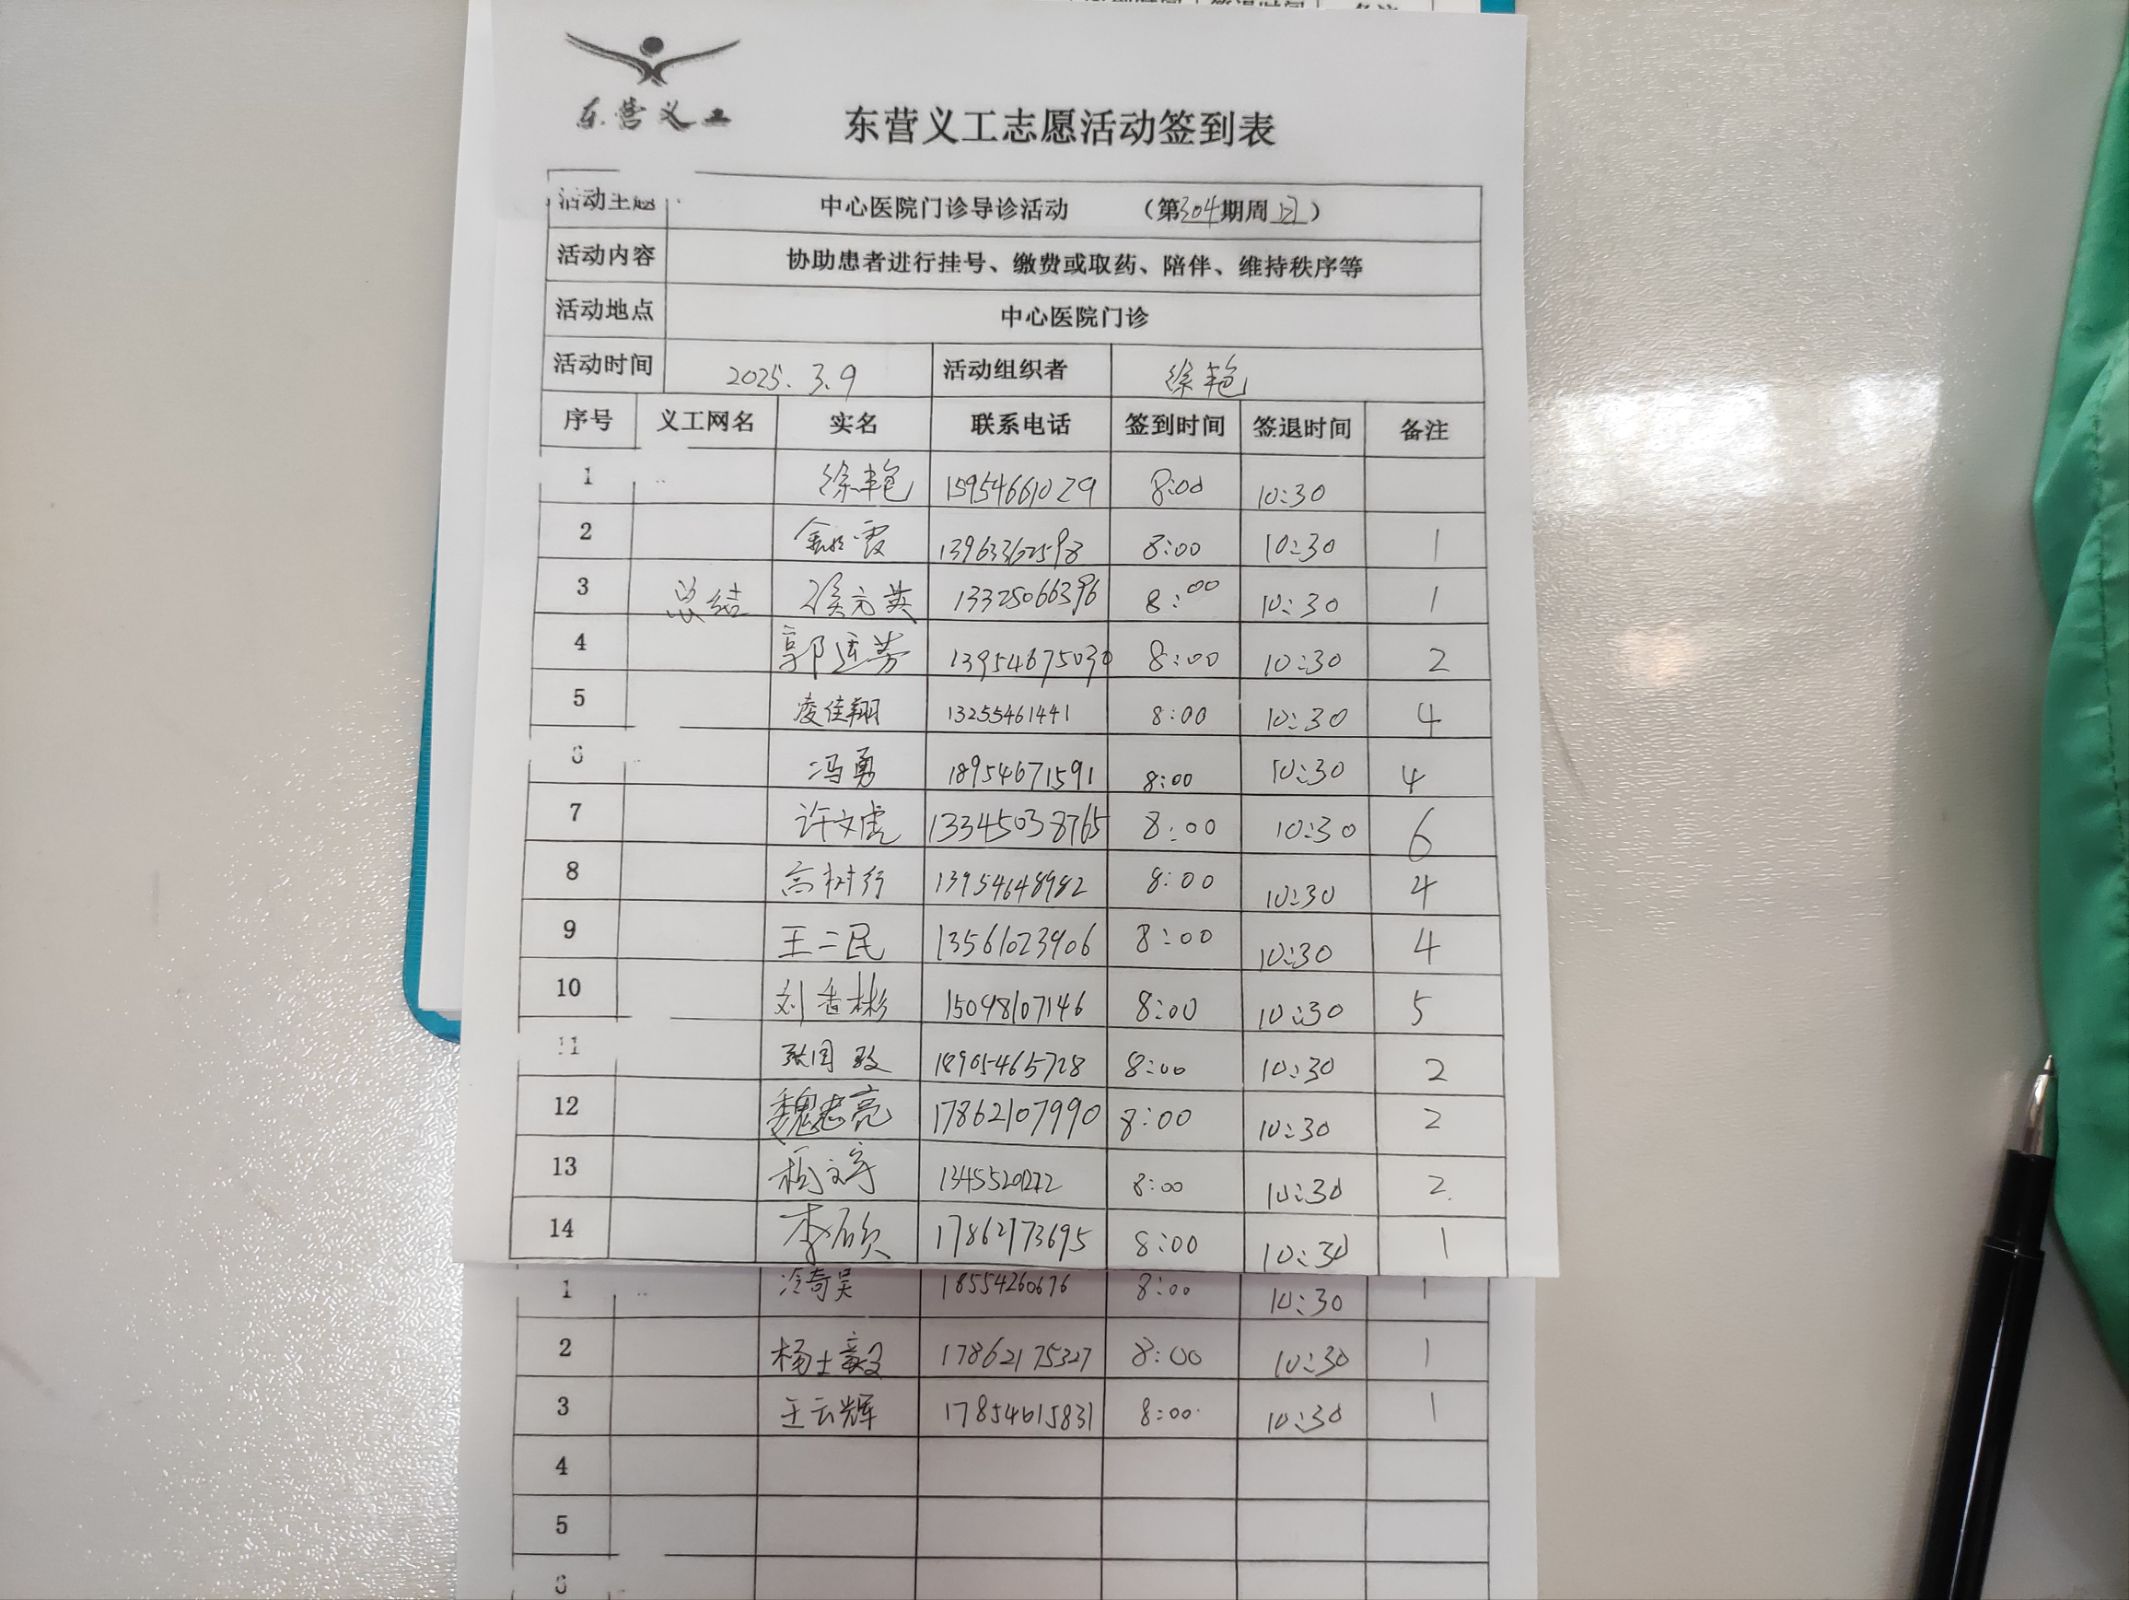 东营义工
东营义工志愿活动签到表
活动主题 中心医院门诊导诊活动 (第304期周日)
活动内容 协助患者进行挂号、缴费或取药、陪伴、维持秩序等
活动地点 中心医院门诊
活动时间 2025.3.9 活动组织者 徐艳
序号 义工网名 实名 联系电话 签到时间 签退时间 备注
1 徐艳 15954661029 8:00 10:30
2 13963362598 8:00 10:30 1
3 总结 侯元英 13325066396 8:00 10:30 1
4 13954675030 8:00 10:30 2
5 凌佳翔 13255461441 8:00 10:30 4
6 冯勇 18954671591 8:00 10:30 4
7 许文虎 13345038765 8:00 10:30 6
8 高树行 13954648982 8:00 10:30 4
9 王二民 13561023906 8:00 10:30 4
10 刘香彬 15098107146 8:00 10:30 5
11 18905465728 8:00 10:30 2
12 魏志亮 17862107990 8:00 10:30 2
13 8:00 10:30 2
14 李硕 17862173695 8:00 10:30 1
1 冷奇昊 18554260676 8:00 10:30 1
2 杨士毅 17862175327 8:00 10:30 1
3 王云辉 17854615831 8:00 10:30 1
4
5
6